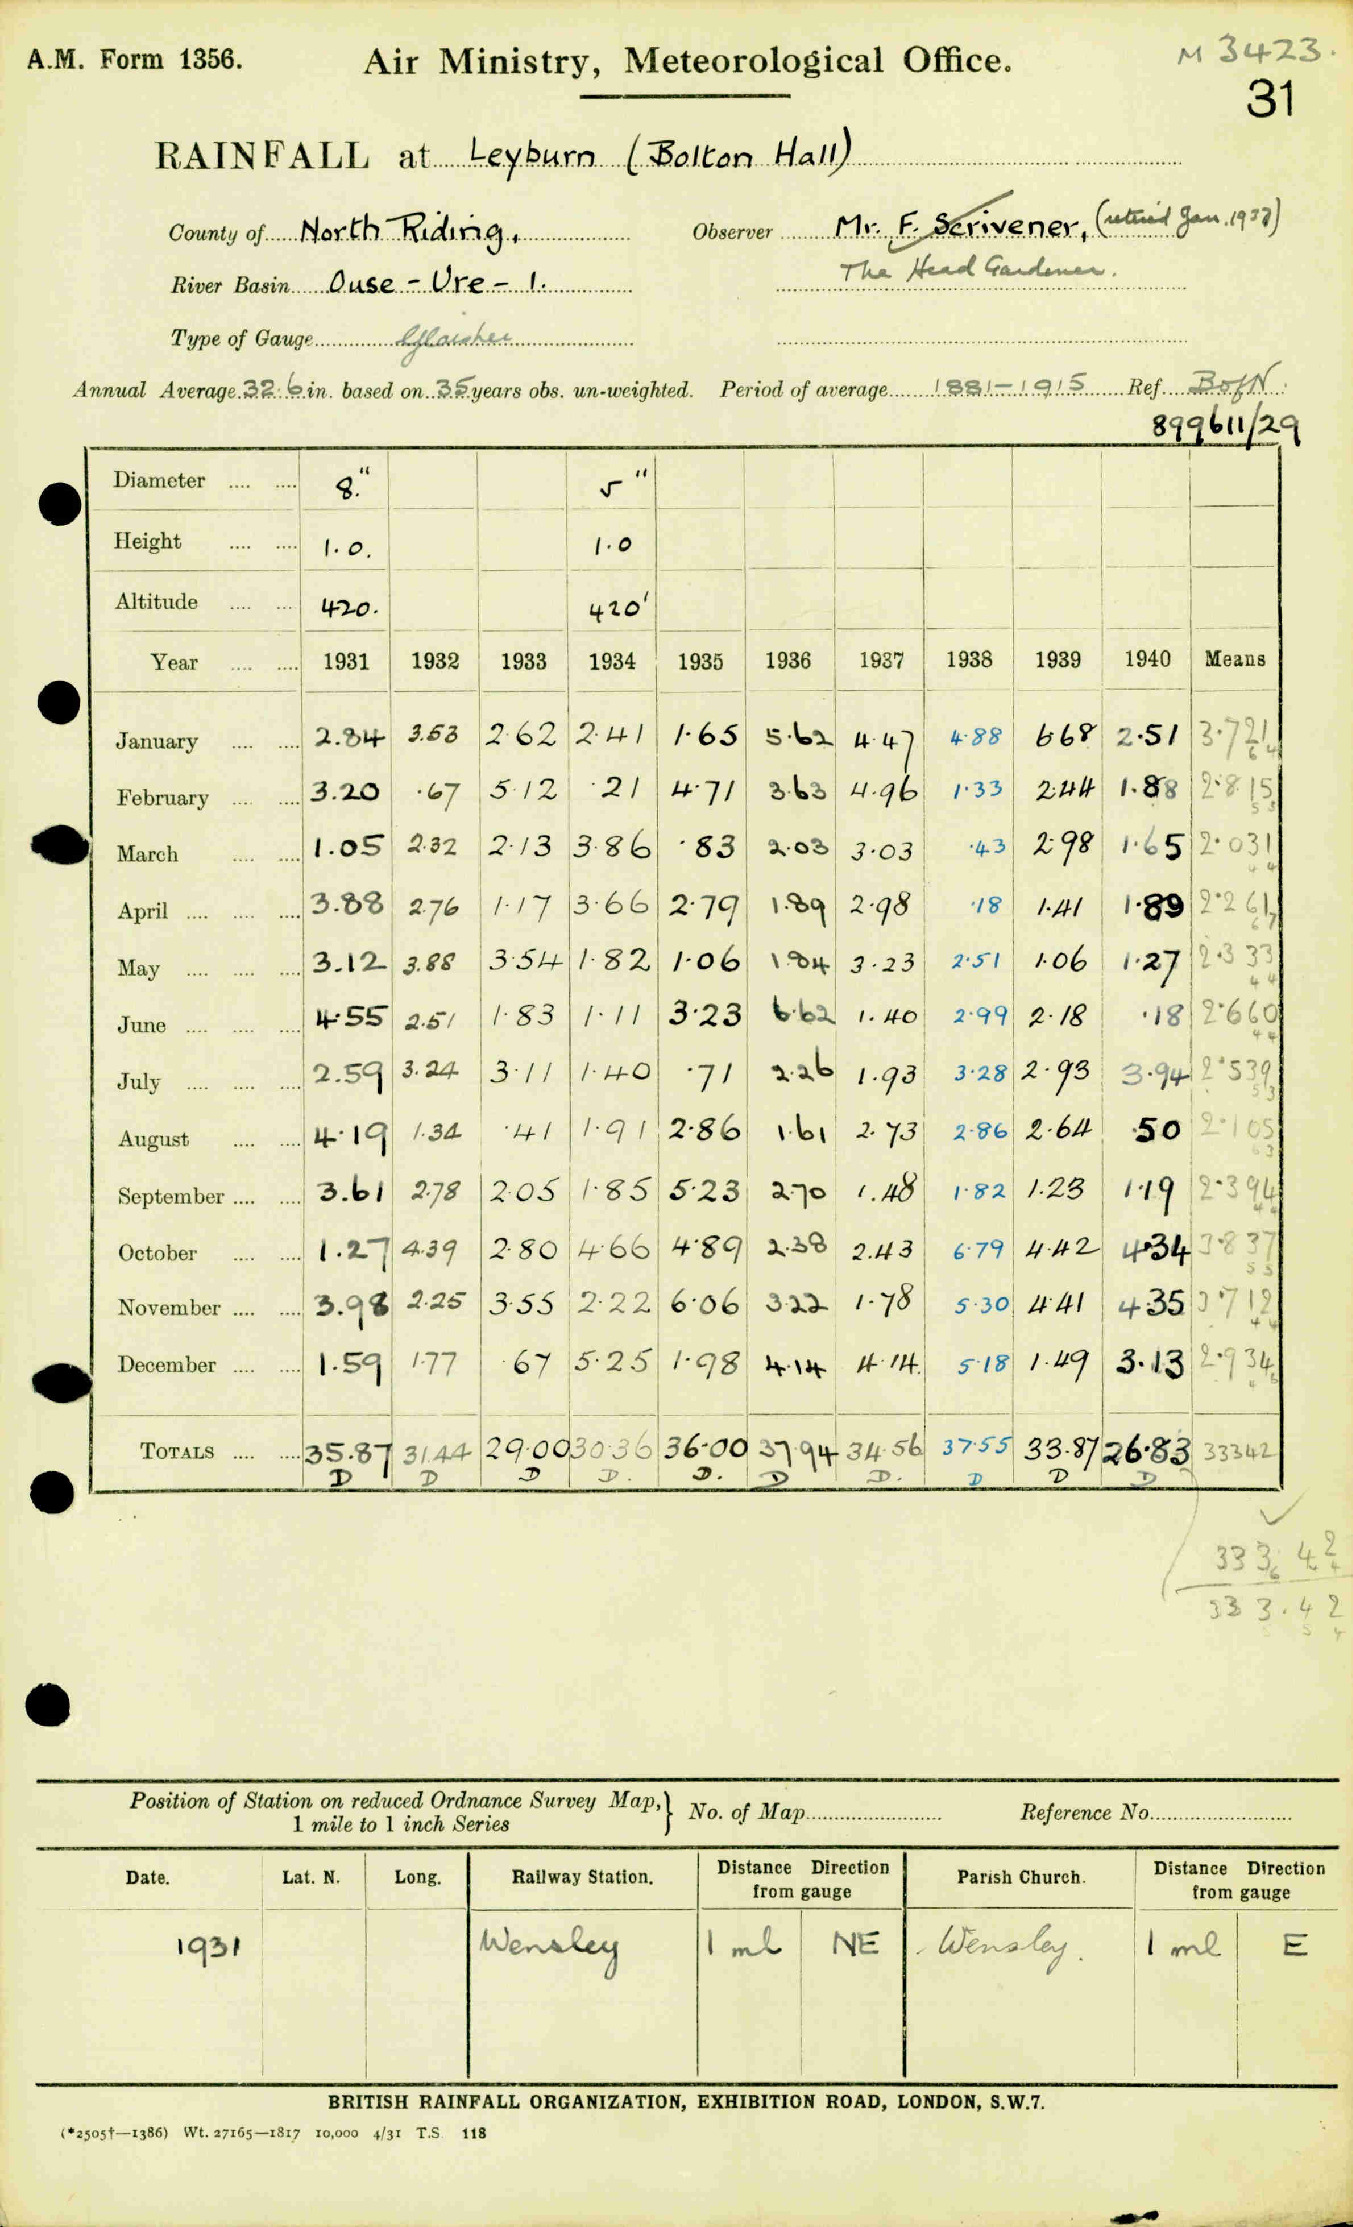 A.M. Form 1356. Air Ministry, Meteorological Office. M 3423.
31
RAINFALL at Leyburn (Bolton Hall)
County of North Riding, Observer Mr. F. Scrivener, (retired Jan. 1937)
River Basin Ouse - Ure - 1. The Head Gardener.
Type of Gauge Glaisher
Annual Average 32.6 in. based on 35 years obs. un-weighted. Period of average 1881-1915 Ref. B of N.
899611/29
Diameter .... .... 8." 5"
Height .... .... 1.0. 1.0
Altitude .... .... 420. 420'
Year .... .... 1931 1932 1933 1934 1935 1936 1937 1938 1939 1940 Means
January .... .... 2.84 3.53 2.62 2.41 1.65 5.62 4.47 4.88 6.68 2.51 3.721
February .... .... 3.20 .67 5.12 .21 4.71 3.63 4.96 1.33 2.44 1.88 2.815
March .... .... 1.05 2.32 2.13 3.86 .83 2.03 3.03 .43 2.98 1.65 2.031
April .... .... .... 3.88 2.76 1.17 3.66 2.79 1.89 2.98 .18 1.41 1.89 2.261
May .... .... .... 3.12 3.88 3.54 1.82 1.06 1.84 3.23 2.51 1.06 1.27 2.333
June .... .... .... 4.55 2.51 1.83 1.11 3.23 6.62 1.40 2.99 2.18 .18 2.660
July .... .... .... 2.59 3.24 3.11 1.40 .71 2.26 1.93 3.28 2.93 3.94 2.539
August .... .... 4.19 1.34 .41 1.91 2.86 1.61 2.73 2.86 2.64 .50 2.105
September .... .... 3.61 2.78 2.05 1.85 5.23 2.70 1.48 1.82 1.23 1.19 2.394
October .... .... 1.27 4.39 2.80 4.66 4.89 2.38 2.43 6.79 4.42 4.34 3.837
November .... .... 3.98 2.25 3.55 2.22 6.06 3.22 1.78 5.30 4.41 4.35 3.712
December .... .... 1.59 1.77 .67 5.25 1.98 4.14 4.14 5.18 1.49 3.13 2.934
TOTALS .... .... 35.87 31.44 29.00 30.36 36.00 37.94 34.56 37.55 33.87 26.83 33342
D D D D. D. D D. D D D
333.42
333.42
Position of Station on reduced Ordnance Survey Map, } No. of Map Reference No.
1 mile to 1 inch Series
Date. Lat. N. Long. Railway Station. Distance Direction from gauge Parish Church. Distance Direction from gauge
1931 Wensley 1 ml NE Wensley. 1 ml E
BRITISH RAINFALL ORGANIZATION, EXHIBITION ROAD, LONDON, S.W.7.
(*2505†—1386) Wt. 27165—1817 10,000 4/31 T.S. 118